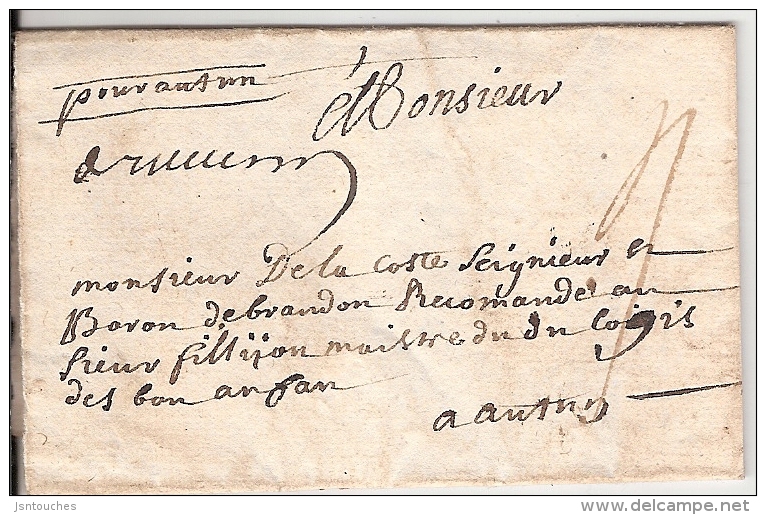 pour autun
A Monsieur
monsieur De la Coste Seignieur et
Baron de brandon Recomandé au
sieur fillijon maistre du du Logis
des bon anfan
a autun
jsntouches
delcampe.net